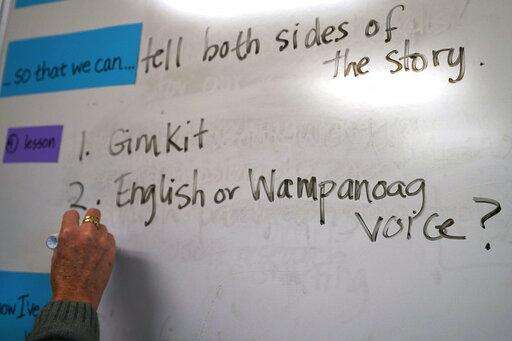 ...so that we can... tell both sides of
the story.
lesson 1. Gimkit
2. English or Wampanoag
voice?
now I've